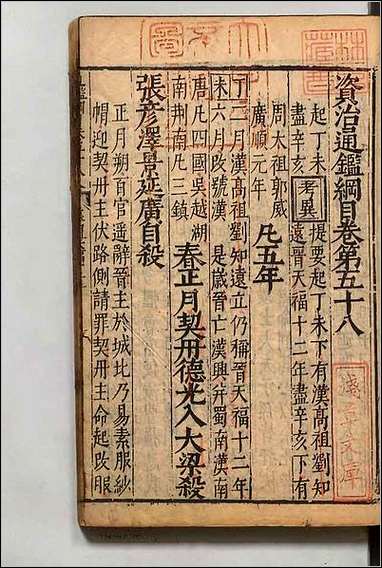 資治通鑑綱目卷第五十八
起丁未
盡辛亥
考異
提要起丁未下有漢高祖劉知
遠晉天福十二年盡辛亥下有
周太祖郭威
廣順元年
凡五年
丁
未
二月漢高祖劉知遠立仍稱晉天福十二年
六月改號漢
是歲晉亡漢興并蜀南漢南
唐凡四國吳越湖
南荆南凡三鎮
春正月契丹德光入大梁殺
張彦澤景延廣自殺
正月朔百官遥辭晉主於城北乃易素服紗
帽迎契丹主伏路側請罪契丹主命起改服
淺草文庫